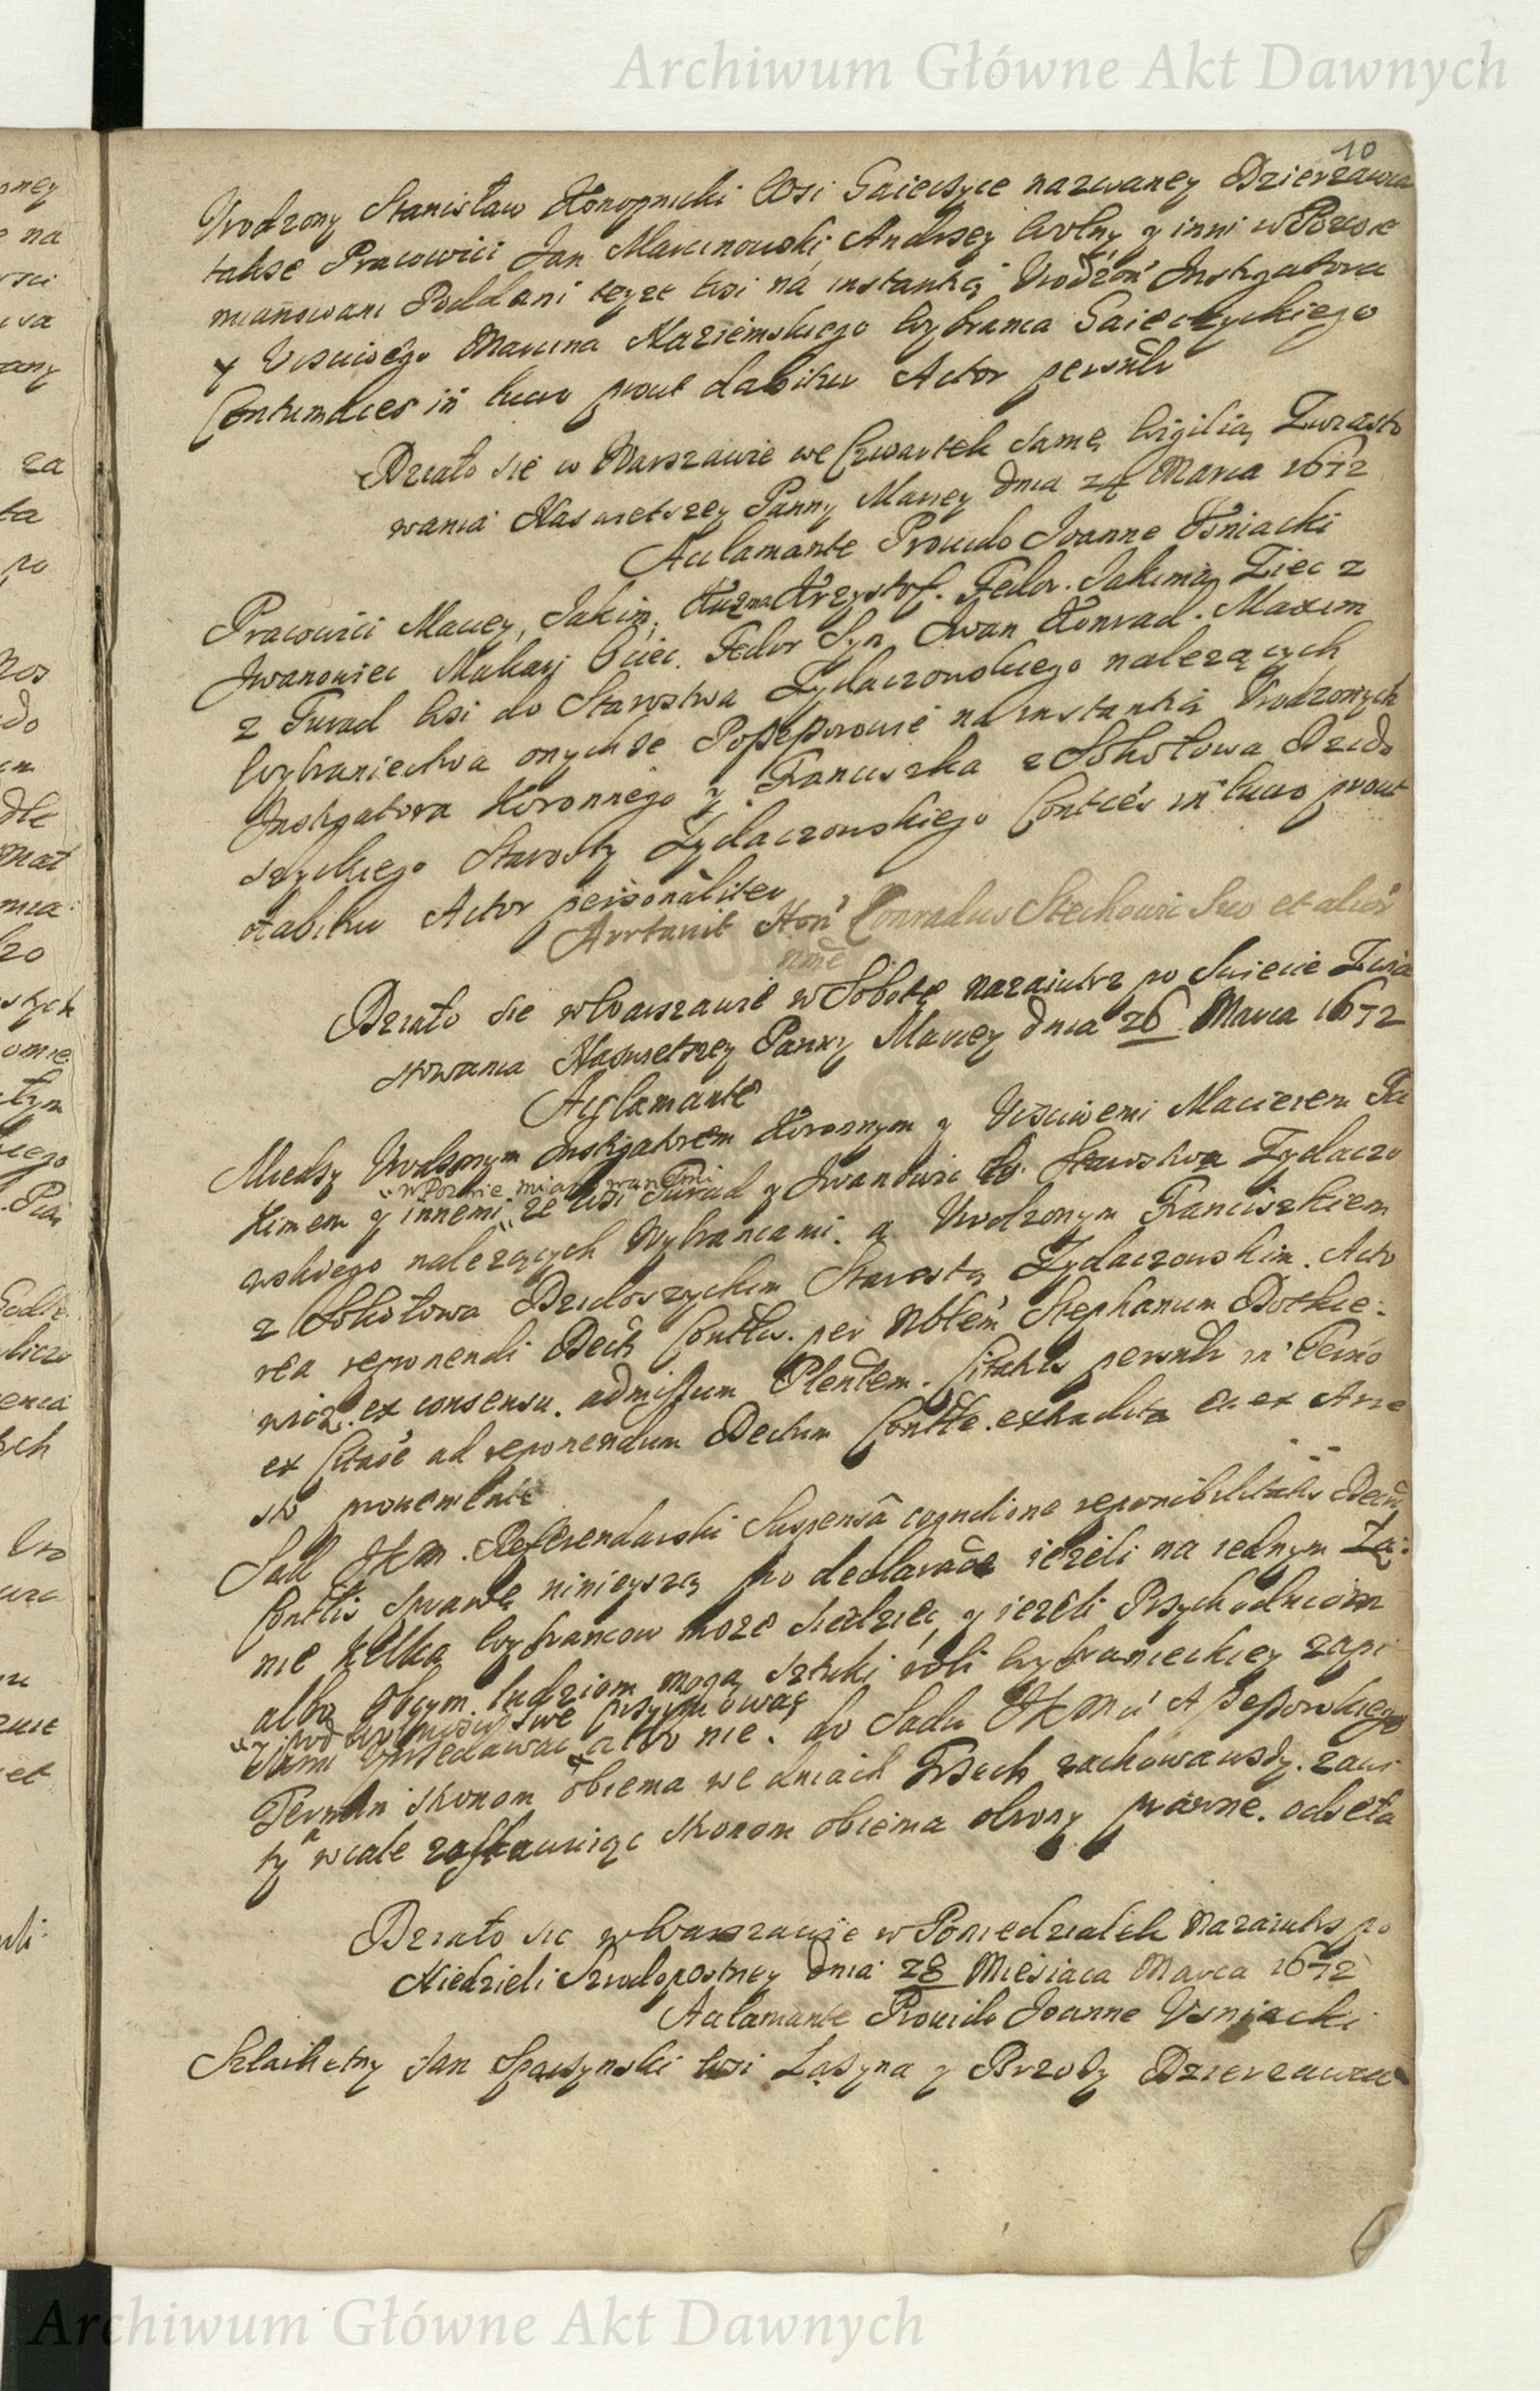 Archiwum Główne Akt Dawnych
10
Urodzony Stanisław Konopnicki Wsi Gaieczyce nazwaney Dzierzawca
takze Pracowici Jan Marcinowski, Andrzey Wolny y inni w Pozwie
mianowani Poddani teyze Wsi na instantią Urodzon Instigatora
y Uczciwego Marcina Kaziemskiego Wybranca Gaieczyckiego
Contumaces in lucro prout dabitur Actor personlr
Działo się w Warszawie we Czwartek samę Wigilią Zwiasto
wania Naswietszey Panny Mariey dnia 24 Marca 1672
Acclamante Provido Joanne Usniacki
Pracowici Maciey, Jakim, Kuzma Krzysztof. Fedor. Jakimia Ziec z
Iwanowiec Makary Ociec. Fedor Syn Iwan Konrad. Maxim
z Turad Wsi do Starostwa Zydaczowskiego nalezących
Wybraniectwa onychze Possessorowie na instantią Urodzonych
Instigatora Koronnego y Franciszka z Sokołowa Dziedo
szyckiego Starosty Zydaczowskiego Contces in lucro prout
dabitur Actor personaliter
Arrtavit Hon Conradus Stechowi Suo et alior
nme
Działo się w Warszawie w Sobotę nazaiutrz po Swiecie Zwia
stowania Naswietszey Panny Mariey dnia 26 Marca 1672
Acclamante
Miedzy Urodzonym Instigatorem Koronnym y Uczciwemi Macieiem Ja
w Pozwie mianowanemi
kimem y innemi ze Wsi Turad y Iwanowic do Starostwa Zydaczo
wskiego nalezących Wybrancami. a Urodzonym Franciszkiem
z Sokołowa Dziedoszyckim Starostą Zydaczowskim. Acto
rea reponendi Decti Conttlis. per Noblem Stephanum Dotkie:
wicz. ex consensu. admissum Plentem. Citatis personlr in Termo
ex Citaoe ad reponendum Dectum Conttle. extradita et ex Arre
sto proveniente
Sąd JKM. Referendarski Suspensa cognitione reponibilitatis Decti
Conttlis sprawę ninieyszą po declaracie iezeli na iednym Ła:
nie kilka Wybrancow moze siedziec, y iezeli Przychodniom
albo Obcym ludziom mogą sztuki roli wybranieckiey zapi
y pod wolnosci swe przyimowac
sami sprzedawac albo nie. do Sądu JKMci Assessorskiego
Termin stronom obiema we dniach Trzech zachowawszy. zawi
ty a wcale zostawuiąc stronom obiema obrony prawne. odsela
Działo się w Warszawie w Poniedziałek Nazaiutrz po
Niedzieli Srzodopostney dnia 28 Miesiąca Marca 1672
Acclamante Provido Joanne Usniacki
Szlachetny Jan Spaczynski Wsi Łązyna y Brzozy Dzierzawca
Archiwum Główne Akt Dawnych